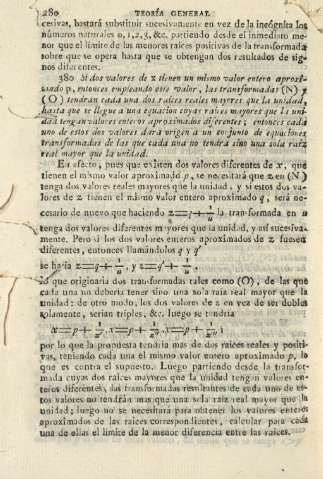 280 TEORÍA GENERAL
cesivas, bastará substituir sucesivamente en vez de la incógnita los
números naturales 0, 1, 2, 3, &c. partiendo desde el inmediato me-
nor que el límite de las menores raices positivas de la transformada
sobre que se opera hasta que se obtengan dos resultados de sig-
nos diferentes.
380 Si dos valores de x tienen un mismo valor entero aproxi-
mado p, entonces empleando este valor, las transformadas (N) y
(O) tendrán cada una dos raices reales mayores que la unidad,
hasta que se llegue á una equacion cuyas raices mayores que la uni-
dad tengan valores enteros aproximados diferentes; entonces cada
uno de estos dos valores dará origen á un conjunto de equaciones
transformadas de las que cada una no tendrá sino una sola raiz
real mayor que la unidad.
En efecto, pues que existen dos valores diferentes de x, que
tienen el mismo valor aproximado p, se necesitará que z en (N)
tenga dos valores reales mayores que la unidad, y si estos dos va-
lores de z tienen el mismo valor entero aproximado q, será ne-
cesario de nuevo que haciendo z=q+1/u la transformada en u
tenga dos valores diferentes mayores que la unidad, y así sucesiva-
mente. Pero si los dos valores enteros aproximados de z fuesen
diferentes, entonces llamándolos q y q'
se haria z=q+1/u, y z=q'+1/u,
lo que originaria dos transformadas tales como (O), de las que
cada una no deberia tener sino una sola raiz real mayor que la
unidad: de otro modo, los dos valores de z en vez de ser dobles
solamente, serian triples, &c. luego se tendria
x=p+1/z, x=p+1/z, x=p+1/z,
por lo que la propuesta tendria mas de dos raices reales y positi-
vas, teniendo cada una el mismo valor entero aproximado p, lo
que es contra el supuesto. Luego partiendo desde la transfor-
mada cuyas dos raices mayores que la unidad tengan valores en-
teros diferentes, las transformadas resultantes de cada uno de es-
tos valores no tendrán mas que una sola raiz real mayor que la
unidad; luego no se necesitará para obtener los valores enteros
aproximados de las raices correspondientes, calcular para cada
una de ellas el límite de la menor diferencia entre las raices.